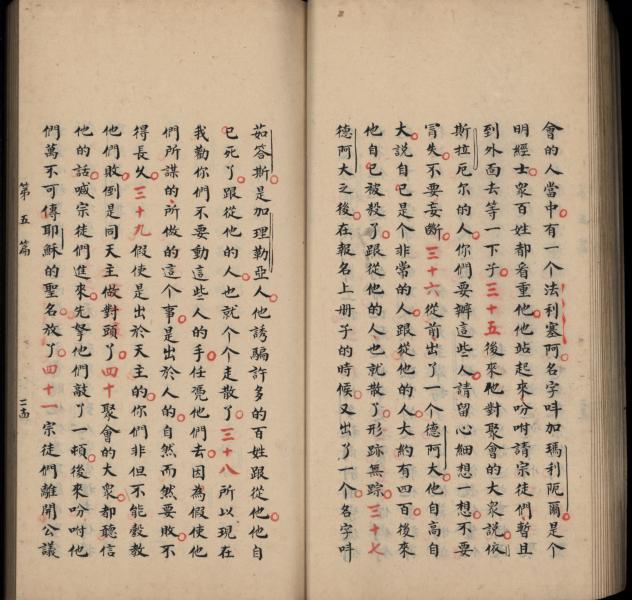 會的人當中有一个法利塞阿名字呌加瑪利阨爾是个
明經士衆百姓都看重他他站起來吩咐請宗徒們暫且
到外面去等一下子三十五後來他對聚會的大衆說依
斯拉厄尔的人你們要辧這些人請留心細想一想不要
冐失不要妄斷三十六從前出了一个德阿大他自高自
大說自已是个非常的人跟從他的人大約有四百後來
他自已被殺了跟從他的人也就散了形跡無踪三十七
德阿大之後在報名上册子的時候又出了一个名字呌
茹答斯是加理勒亞人他誘騙許多的百姓跟從他他自
已死了跟從他的人也就个个走散了三十八所以現在
我勸你們不要動這些人的手任凴他們去因為假使他
們所謀的所做的這个事是出於人的自然而然要敗不
得長久三十九假使是出於天主的你們非但不能彀敎
他們敗倒是同天主做對頭了四十聚會的大衆都聽信
他的話喊宗徒們進來先拏他們敲了一頓後來吩咐他
們萬不可傳耶穌的聖名放了四十一宗徒們離開公議
第五篇